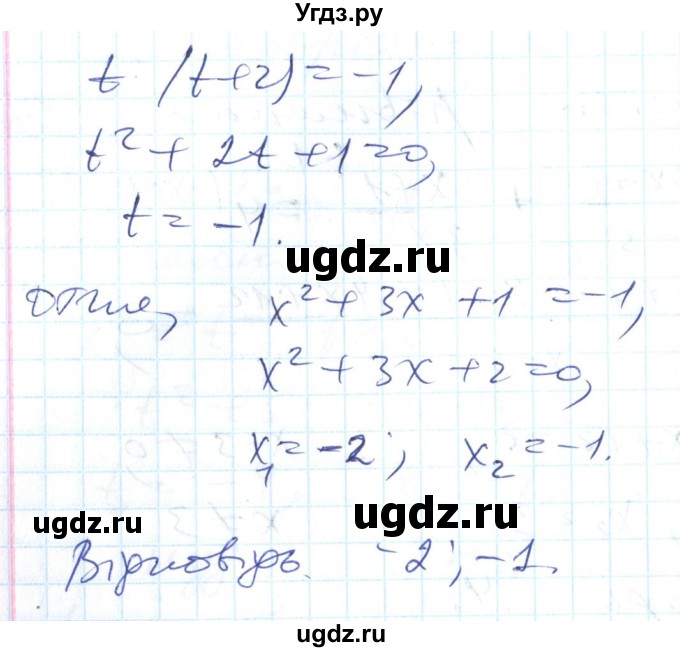 Угдз.ру
t (t+2) = -1,
t² + 2t + 1 = 0,
t = -1.
ugdz.ru
отже, x² + 3x + 1 = -1,
x² + 3x + 2 = 0,
x₁ = -2; x₂ = -1.
ugdz.ru
ugdz.ru
Відповідь. -2; -1.
ugdz.ru